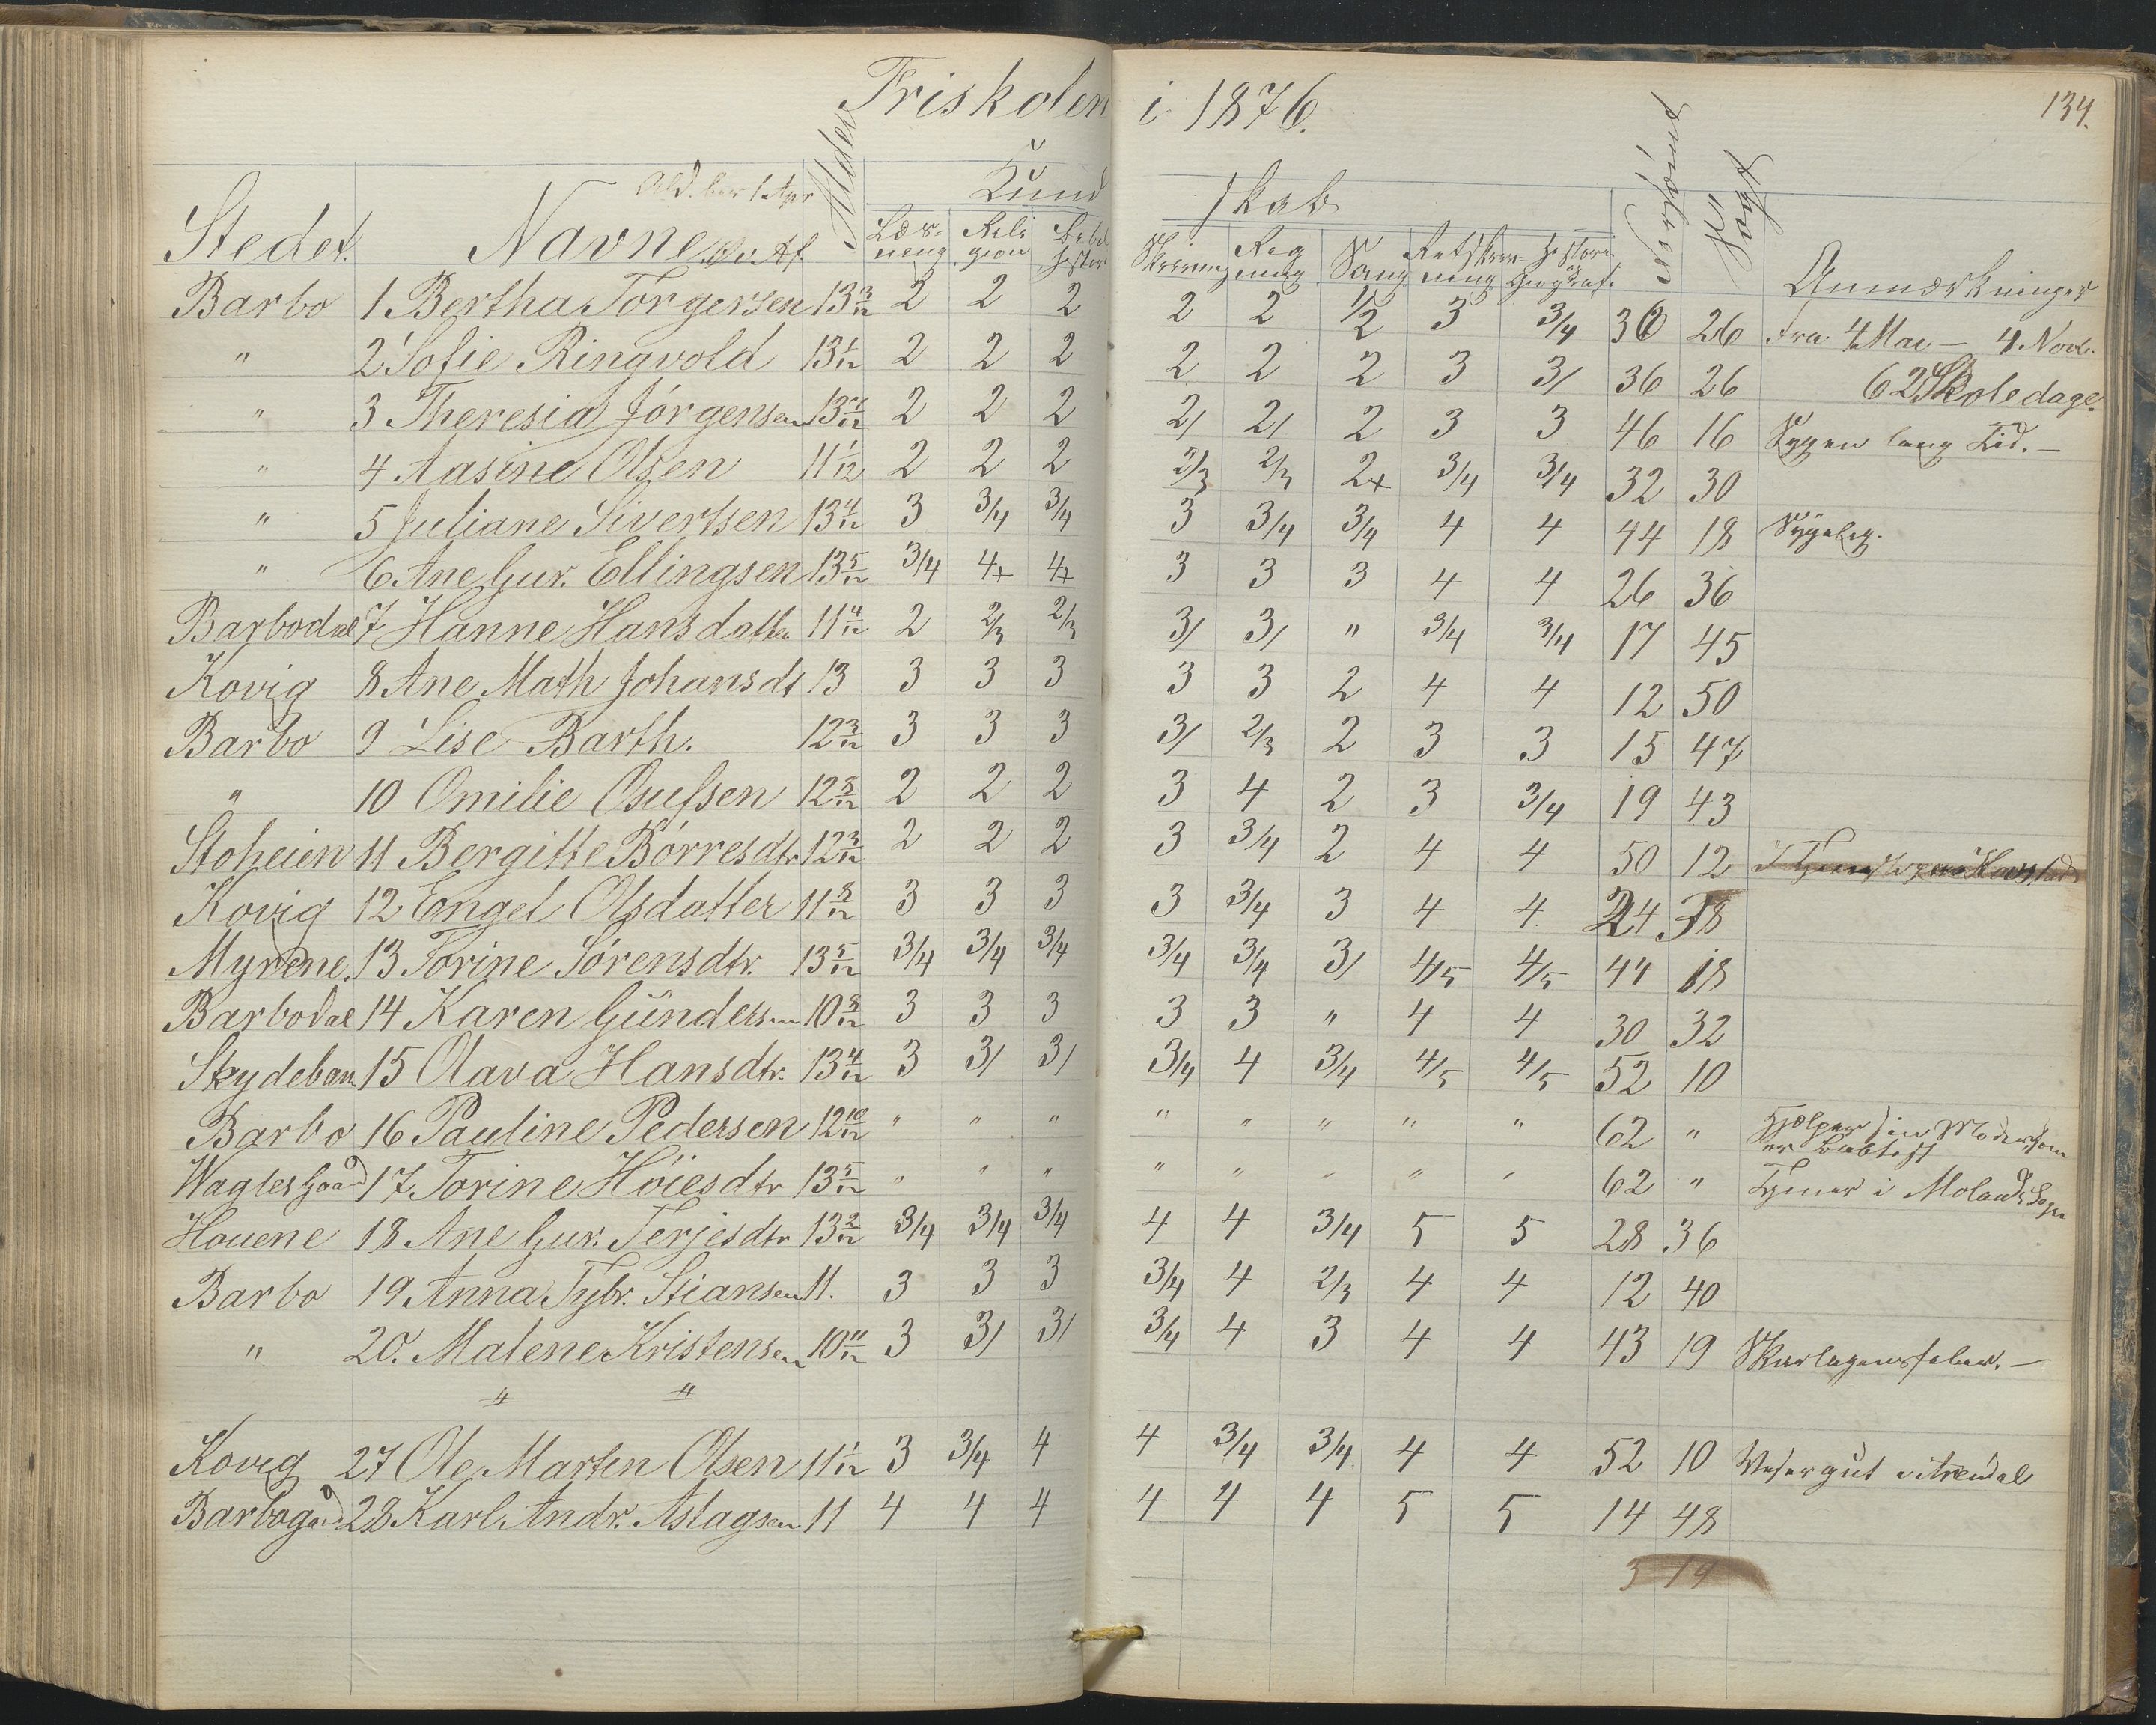 Friskolen i 1876. 134.
Kund skab
Stedet. Navne Alder Læs- Reli Bibel Skrivning Reg Sang Retskriv- Historie Forsømt Søgt Anmærkninger
ning gion Histor ning ning Geograf.
Barbo 1 Bertha Torgersen 13 3/12 2 2 2 2 2 1/2 3 3/4 36 26 Fra 4 Mai — 4 Novb.
" 2 Sofie Ringvold 13 1/12 2 2 2 2 2 2 3 3/ 36 26 62 Skoledage.
" 3 Theresia Jörgensen 13 7/12 2 2 2 2/ 2/ 2 3 3 46 16 Sygen lang Tid. —
" 4 Aasine Olsen 11 1/12 2 2 2 2/3 2/3 2+ 3/4 3/4 32 30
" 5 Juliane Sivertsen 13 4/12 3 3/4 3/4 3 3/4 3/4 4 4 44 18 Sygelig.
" 6. Ane Gur. Ellingsen 13 5/12 3/4 4+ 4+ 3 3 3 4 4 26 36
Barbodal 7 Hanne Hansdatter 11 4/12 2 2/3 2/3 3/ 3/ " 3/4 3/4 17 45
Kovig 8 Ane Math Johansdt 13 3 3 3 3 3 2 4 4 12 50
Barbo 9 Lise Barth. 12 3/12 3 3 3 3/ 2/3 2 3 3 15 47
" 10 Omilie Osufsen 12 8/12 2 2 2 3 4 2 3 3/4 19 43
Stoheien 11 Bergitte Börresdtr 12 3/12 2 2 2 3 3/4 2 4 4 50 12
Kovig 12 Engel Olsdatter 11 8/12 3 3 3 3 3/4 3 4 4 24 38
Myrene. 13 Torine Sörensdtr. 13 5/12 3/4 3/4 3/4 3/4 3/4 3/ 4/5 4/5 44 18
Barbodal 14 Karen Gundersen 10 8/12 3 3 3 3 3 " 4 4 30 32
Skydeban 15 Olava Hansdtr. 13 4/12 3 3/ 3/ 3/4 4 3/4 4/5 4/5 52 10
Barbo 16 Pauline Pedersen 12 10/12 " " " " " " " " 62 " Hjælper sin Moder som
er
Wagtersgaad 17 Torine Höiesdtr 13 5/12 " " " " " " " " 62 " Tjener i Molands Sogn
Houene 18 Ane Gur. Terjesdtr 13 2/12 3/4 3/4 3/4 4 4 3/4 5 5 28 36
Barbo 19 Anna Tybr. Stiansen 11. 3 3 3 3/4 4 2/3 4 4 12 40
" 20. Malene Kristensen 10 11/12 3 3/ 3/ 3/4 4 3 4 4 43 19 Skarlagensfeber. —
" "
Kovig 27 Ole Marten Olsen 11 1/12 3 3/4 4 4 3/4 3/4 4 4 52 10 Visergut i Arendal
Barbogaad 28 Karl Andr. Aslagsen 11 4 4 4 4 4 4 5 5 14 48
3 19